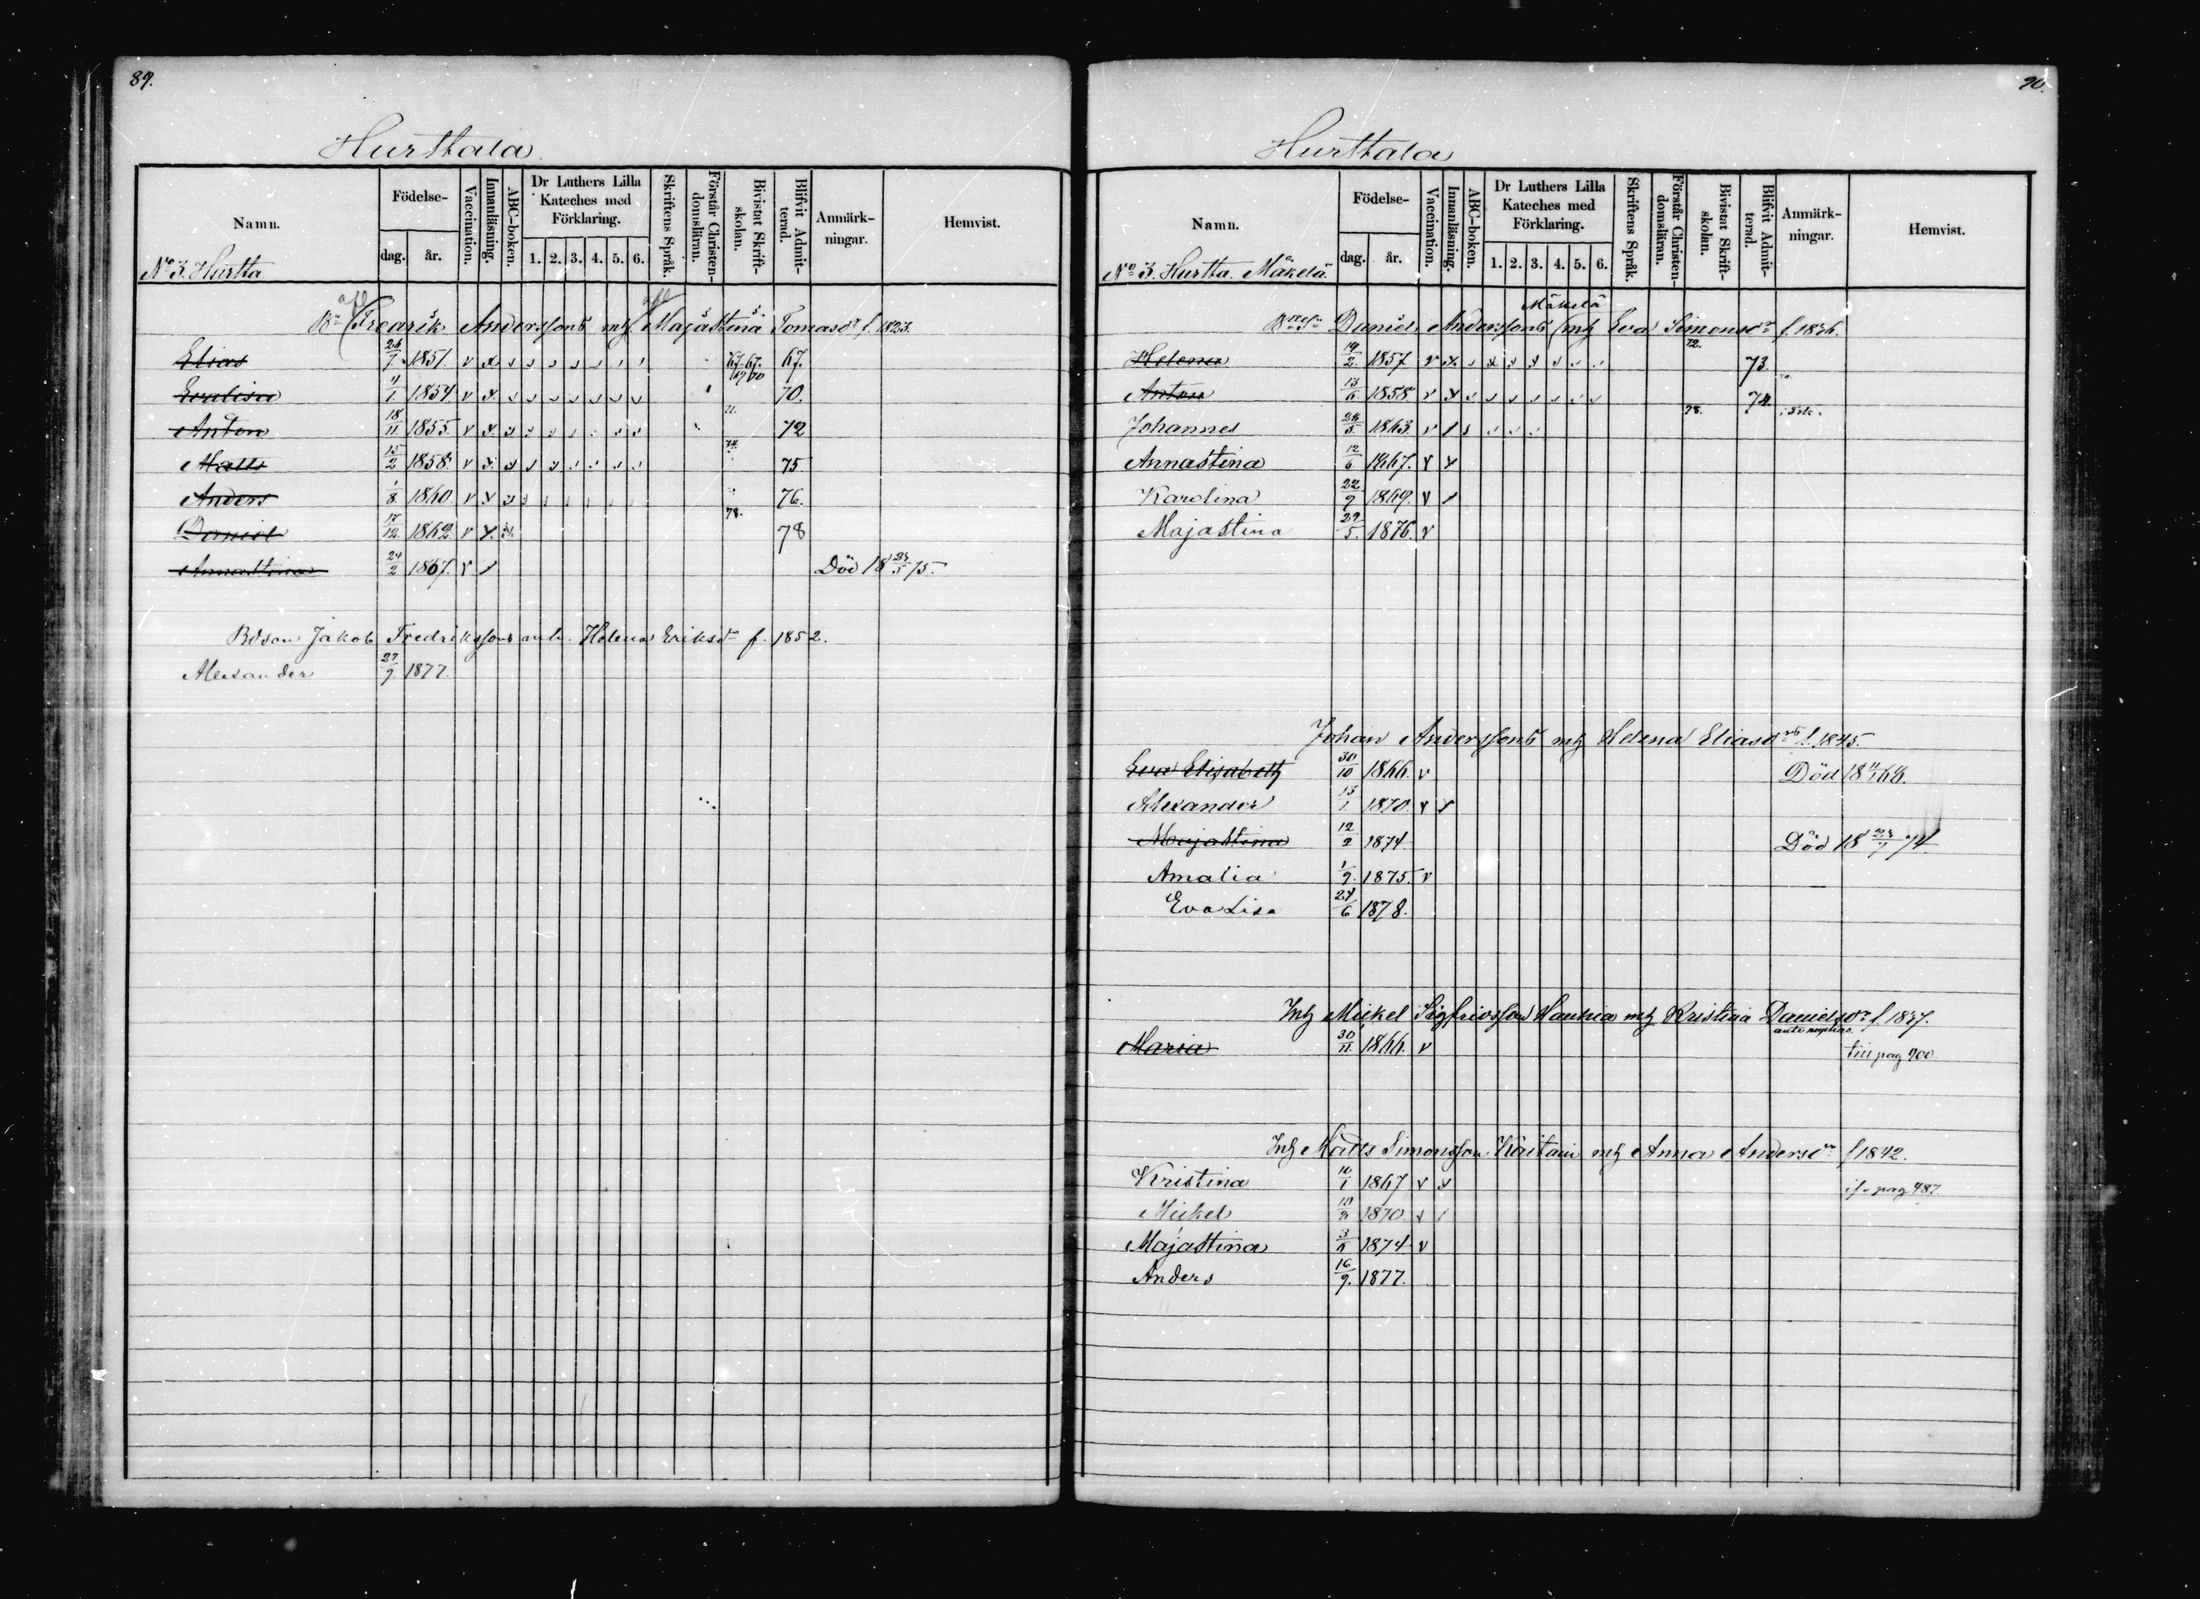 89.
Hurttala
Namn.
Födelse-
dag. år.
Vaccination.
Innanläsning.
ABC-boken.
Dr Luthers Lilla Kateches med Förklaring.
1. 2. 3. 4. 5. 6.
Skriftens Språk.
Förstår Christendomsläran.
Bivistat Skriftskolan.
Blifvit Admitterad.
Anmärkningar.
Hemvist.
No 3. Hurtta
Fredrik Anderssons mh Majastina Tomasdr f. 1823.
Elias 26/7 1851. v x 67. 67. 67.
Evalisa 4/1 1854. v x 69 70 70.
Anton 18/11 1855. v x 71. 72
Matts 15/2 1858. v x 74. 75.
Anders 1/8 1860. v x 76.
Daniel 17/12 1862 v x 78. 78
Annastina 24/2 1867. v / Död 18 23/5 75.
Bdson Jakob Fredrikssons mh. Helena Eriksdr f. 1852.
Alexander 27/9 1877.
90.
Hurttala
Namn.
Födelse-
dag. år.
Vaccination.
Innanläsning.
ABC-boken.
Dr Luthers Lilla Kateches med Förklaring.
1. 2. 3. 4. 5. 6.
Skriftens Språk.
Förstår Christendomsläran.
Bivistat Skriftskolan.
Blifvit Admitterad.
Anmärkningar.
Hemvist.
No 3. Hurtta Mäkelä
Mäkelä
Daniel Anderssons mh Eva Simonsdr f. 1836.
Helena 19/2 1857 v x 72. 73.
Anton 13/6 1858 v x 74.
Johannes 24/5 1863 v / 78.
Annastina 12/6 1867. v x
Karolina 22/9 1869. v /
Majastina 29/5. 1876. v
Johan Anderssons mh Helena Eliasdrs f. 1845.
Eva Elisabeth 30/10 1866. v Död 18 11/1 68.
Alexander 13/1. 1870. v x
Majastina 12/2 1874 Död 18 23/7 74
Amalia 1/9. 1875. v
Eva Lisa 24/6 1878.
Inh Mickel Sigfridsson Haukia mh Kristina Danielsdr f. 1837.
ante nuptias
Maria 30/11. 1866. v till pag 900
Inh Matts Simonsson Kaitain mh Anna Andersdr f 1842.
Kristina 10/1 1867 v x pag 487
Mickel 1870. v /
Majastina 1874 v
Anders 16/9. 1877.